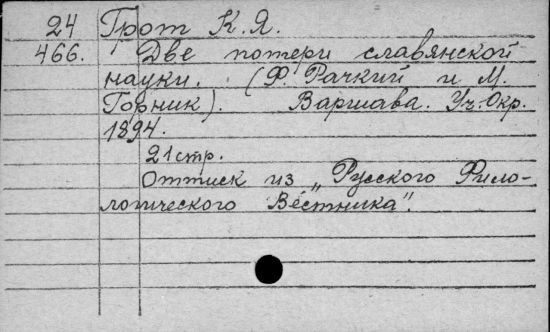 24 Грот К. Я.
466. Две потери славянской
науки. (Ф. Рачкий и М.
Горник). Варшава. Уч. Окр.
1894.
21 стр.
Оттиск из „Русского Фило-
логического Вестника".